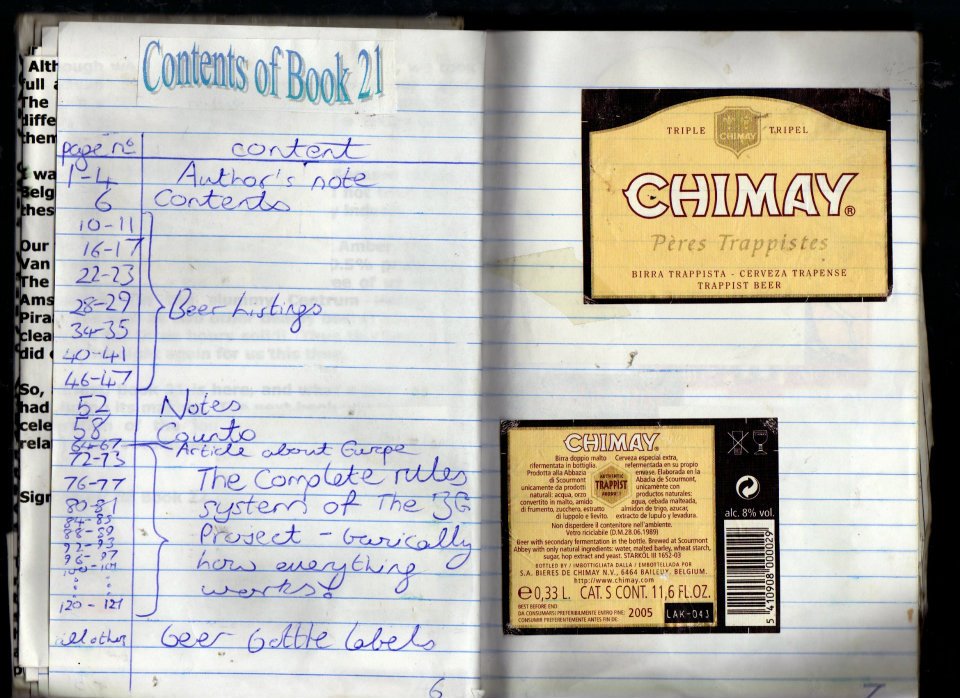 Alth
full a
The
diffe
them
I wa
Belg
thes
Our
Van
The
Ams
Pira
clea
did
So,
had
cele
rela
Sign
Contents of Book 21
page no content
1-4 Author's note
6 Contents
10-11
16-17
22-23
28-29 Beer Listings
34-35
40-41
46-47
52 Notes
58 Counts
64-67 Article about Europe
72-73
76-77 The Complete rules
80-81 system of The 3G
84-85
88-89 Project - basically
92-93
96-97 how everything
100-101
" works!
"
120-121
all other beer bottle labels
6
TRIPLE TRIPEL
CHIMAY
CHIMAY®
Pères Trappistes
BIRRA TRAPPISTA - CERVEZA TRAPENSE
TRAPPIST BEER
CHIMAY
Birra doppio malto
rifermentata in bottiglia.
Prodotta alla Abbazia
di Scourmont
unicamente da prodotti
naturali: acqua, orzo
convertito in malto, amido
di frumento, zucchero, estratto
di luppolo e lievito.
AUTHENTIC
TRAPPIST
PRODUCT
Cerveza especial extra,
refermentada en su propio
envase. Elaborada en la
Abadia de Scourmont,
unicamente con
productos naturales:
agua, cebada malteada,
almidon de trigo, azucar,
extracto de lupulo y levadura.
Non disperdere il contenitore nell'ambiente.
Vetro riciclabile (D.M.28.06.1989)
Beer with secondary fermentation in the bottle. Brewed at Scourmont
Abbey with only natural ingredients: water, malted barley, wheat starch,
sugar, hop extract and yeast. STARKÖL III 1652-03
BOTTLED BY / IMBOTTIGLIATA DALLA / EMBOTELLADA POR
S.A. BIERES DE CHIMAY N.V., 6464 BAILEUX, BELGIUM.
http://www.chimay.com
e 0,33 L. CAT. S CONT. 11,6 FL.OZ.
BEST BEFORE END
DA CONSUMARSI PREFERIBILMENTE ENTRO FINE: 2005
CONSUMIR PREFERENTEMENTE ANTES FIN DE:
LAK-043
alc. 8% vol.
5 410908 000029
7